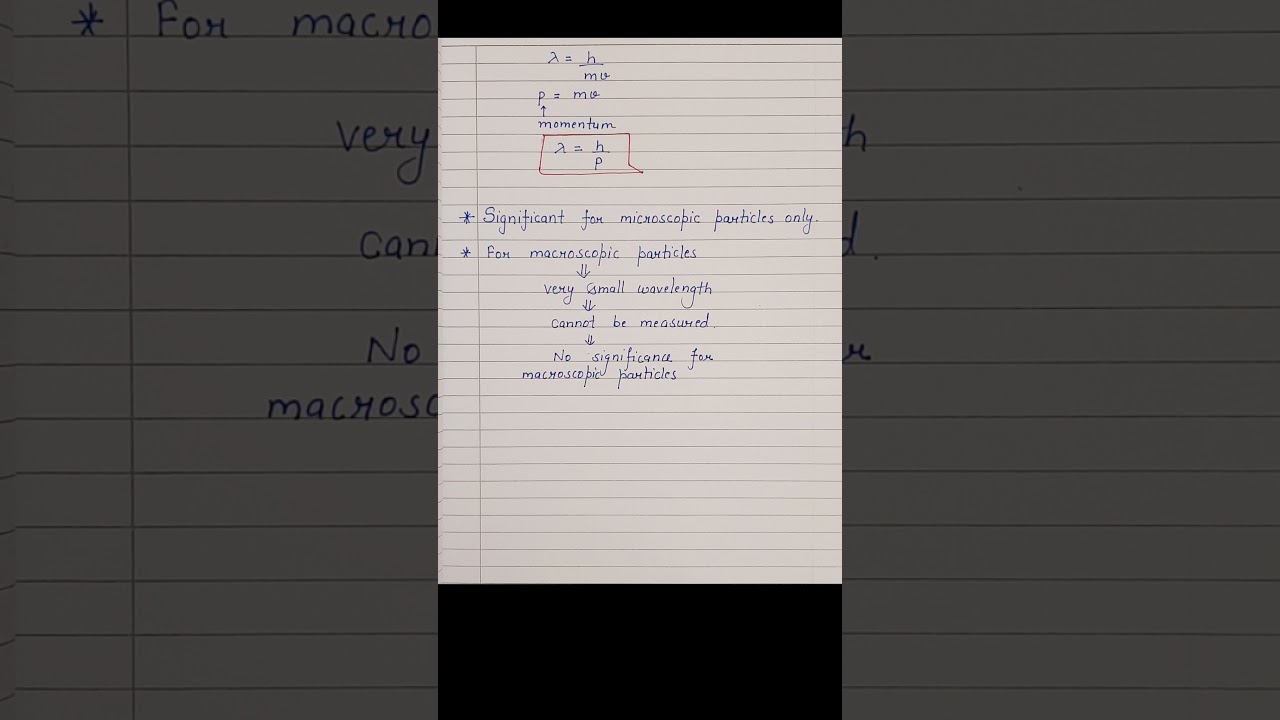 λ = h
mv
p = mv
↑
momentum
λ = h
p
* Significant for microscopic particles only.
* For macroscopic particles
⇓
very small wavelength
⇓
cannot be measured.
⇓
No significance for
macroscopic particles
* For macro
very
h
can
d.
No
r
macrosc